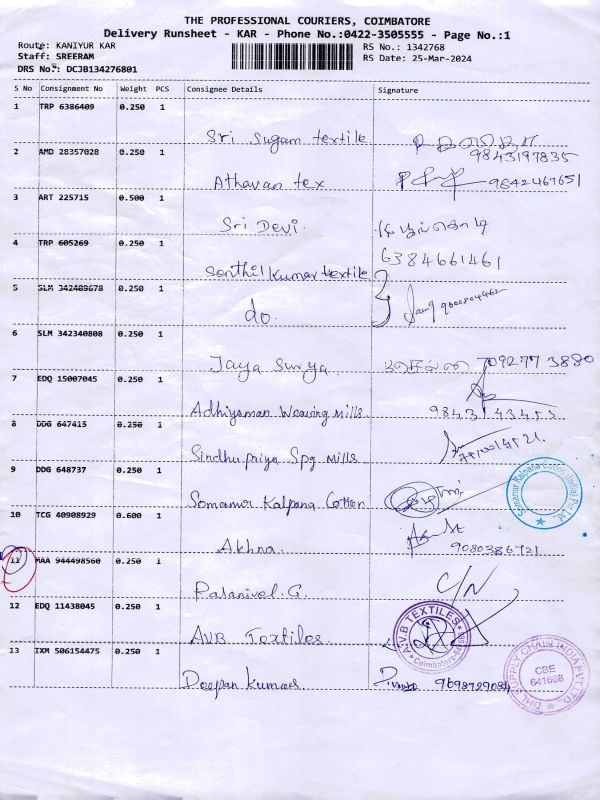 THE PROFESSIONAL COURIERS, COIMBATORE
Delivery Runsheet - KAR - Phone No.:0422-3505555 - Page No.:1
Route: KANIYUR KAR
RS No.: 1342768
Staff: SREERAM
RS Date: 25-Mar-2024
DRS No.: DCJB134276801
S No Consignment No Weight PCS Consignee Details Signature
1 TRP 6386409 0.250 1
Sri Sugam textile
9843197835
2 AMD 28357028 0.250 1
Athavan tex 9842467651
3 ART 225715 0.500 1
Sri Devi.
4 TRP 605269 0.250 1
6384661461
Senthil Kumar textile
5 SLM 342409678 0.250 1
do.
6 SLM 342340808 0.250 1
Jaya Surya 709277 3880
7 EDQ 15007045 0.250 1
Adhiyaman Weaving Mills. 9843143455
8 DDG 647415 0.250 1
Sindhupriya Spg Mills
9 DDG 648737 0.250 1
Somanur Kalpana Cotton
Somanur Kalpana Cotton (India) Pvt Ltd
10 TCG 40908929 0.600 1
Akhna.
9080386721
11 MAA 944498560 0.250 1
C/N
Palanivel. G.
12 EDQ 11438045 0.250 1
A.V.B Textiles
A.V.B TEXTILES
Coimbatore
13 IXM 506154475 0.250 1
Deepan Kumar
DHL SUPPLY CHAIN INDIA PVT LTD.
CBE
641668